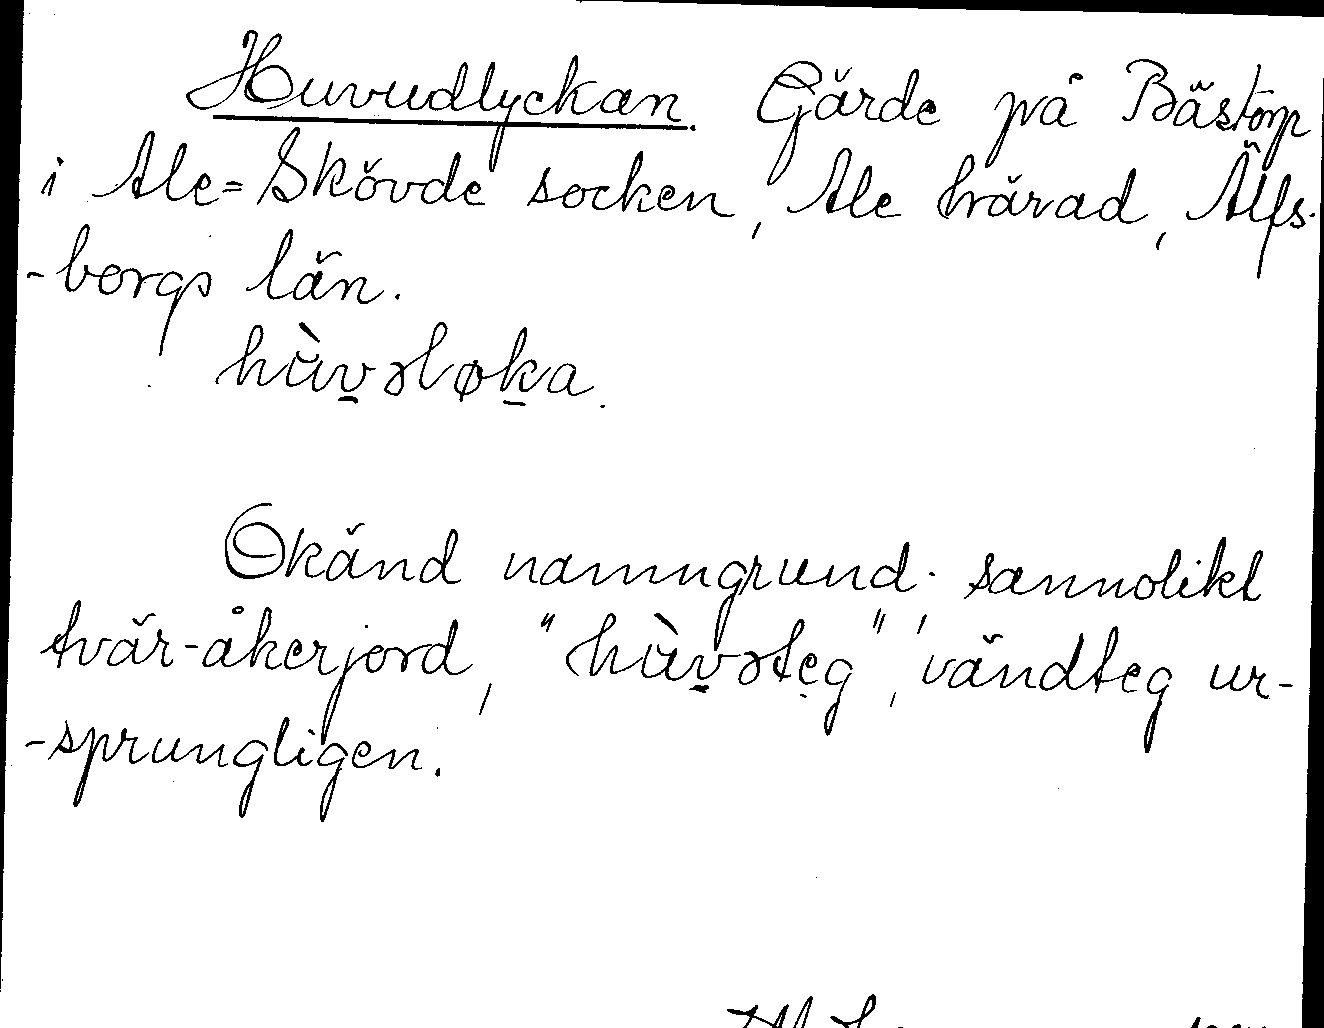 Huvudlyckan. Gärde på Bästorp
i Ale=Skövde socken, Ale härad, Älfs-
-borgs län.
hùvəløka.
Okänd namngrund. sannolikt
tvär-åkerjord, "hùvəteg", vändteg ur-
-sprungligen.